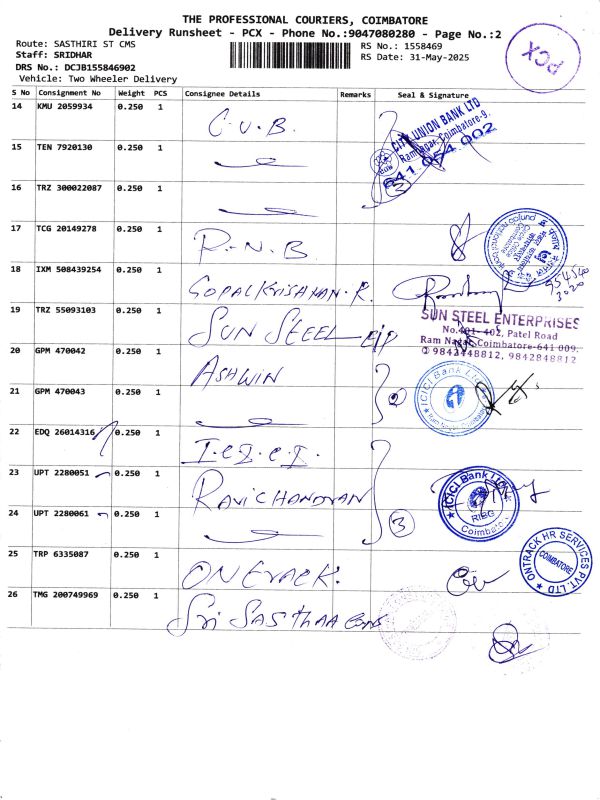 THE PROFESSIONAL COURIERS, COIMBATORE
Delivery Runsheet - PCX - Phone No.:9047080280 - Page No.:2
Route: SASTHIRI ST CMS
Staff: SRIDHAR
DRS No.: DCJB155846902
Vehicle: Two Wheeler Delivery
RS No.: 1558469
RS Date: 31-May-2025
PCX
S No Consignment No Weight PCS Consignee Details Remarks Seal & Signature
14 KMU 2059934 0.250 1 C.U.B.
CITY UNION BANK LTD
Ramnagar, Coimbatore-9.
641.054.002
15 TEN 7920130 0.250 1
16 TRZ 300022087 0.250 1
2
17 TCG 20149278 0.250 1 P.N.B
18 IXM 508439254 0.250 1 GOPALKRISHNAN.R.
19 TRZ 55093103 0.250 1 SUN STEEL E/P
SUN STEEL ENTERPRISES
No.401- 402, Patel Road
Ram Nagar, Coimbatore-641 009.
9842448812, 9842848812
20 GPM 470042 0.250 1 ASHWIN
21 GPM 470043 0.250 1
2
ICICI Bank Ltd
22 EDQ 26014316 0.250 1 I.C.I.C.I.
23 UPT 2280051 0.250 1 RAVICHANDRAN
ICICI Bank Ltd
RIBG
Coimbatore
24 UPT 2280061 0.250 1
3
25 TRP 6335087 0.250 1 ONTRACK.
ONTRACK HR SERVICES PVT. LTD
COIMBATORE
26 TMG 200749969 0.250 1 Sri SASTHAA